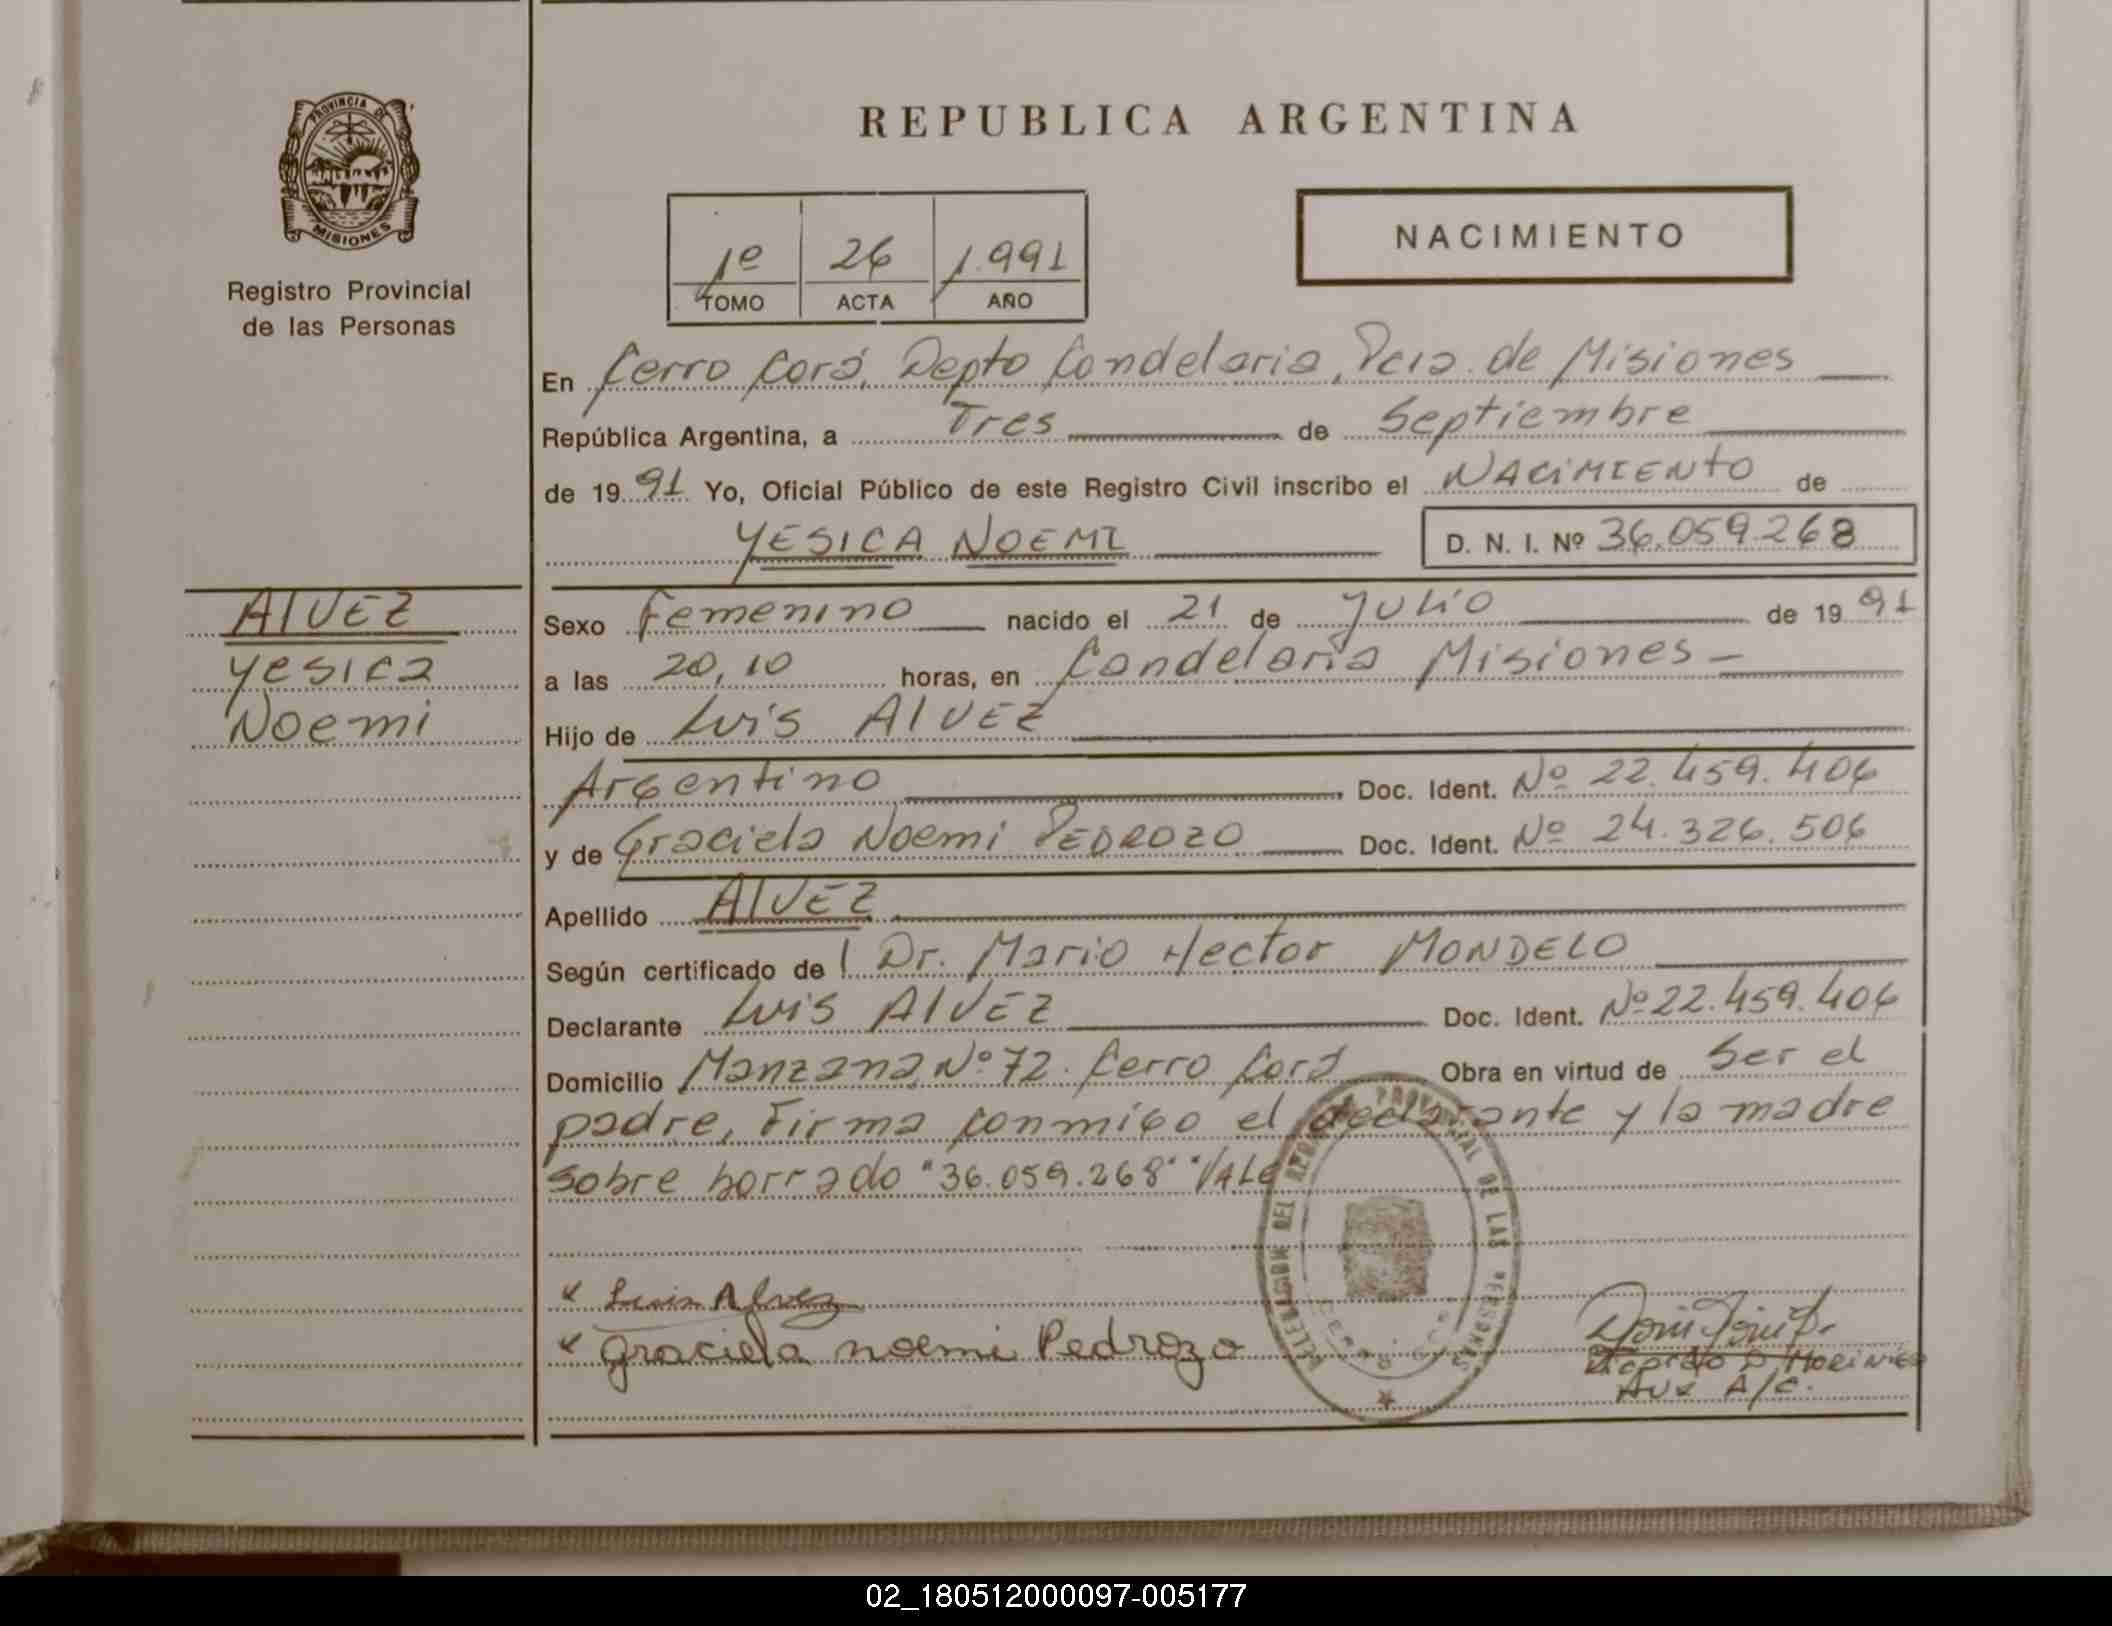 PROVINCIA DE
MISIONES
Registro Provincial
de las Personas
REPUBLICA ARGENTINA
1º 26 1.991
TOMO ACTA AÑO
NACIMIENTO
En Cerro Corá, Depto Candelaria, Pcia. de Misiones
República Argentina, a Tres de Septiembre
de 1991 Yo, Oficial Público de este Registro Civil inscribo el NACIMIENTO de
YESICA NOEMI D. N. I. Nº 36.059.268
ALVEZ
Yesica
Noemi
Sexo Femenino nacido el 21 de Julio de 1991
a las 20,10 horas, en Candelaria Misiones -
Hijo de Luis ALVEZ
Argentino Doc. Ident. Nº 22.459.406
y de Graciela Noemi PEDROZO Doc. Ident. Nº 24.326.506
Apellido ALVEZ
Según certificado de Dr. Mario Hector MONDELO
Declarante Luis ALVEZ Doc. Ident. Nº 22.459.406
Domicilio Manzana Nº 72. Cerro Corá Obra en virtud de Ser el
padre, Firma conmigo el declarante y la madre
sobre borrado "36.059.268" "VALE
Luis Alvez
Graciela noemi Pedrozo
DELEGACION DEL REGISTRO PROVINCIAL DE LAS PERSONAS
Aux A/C.
02_180512000097-005177